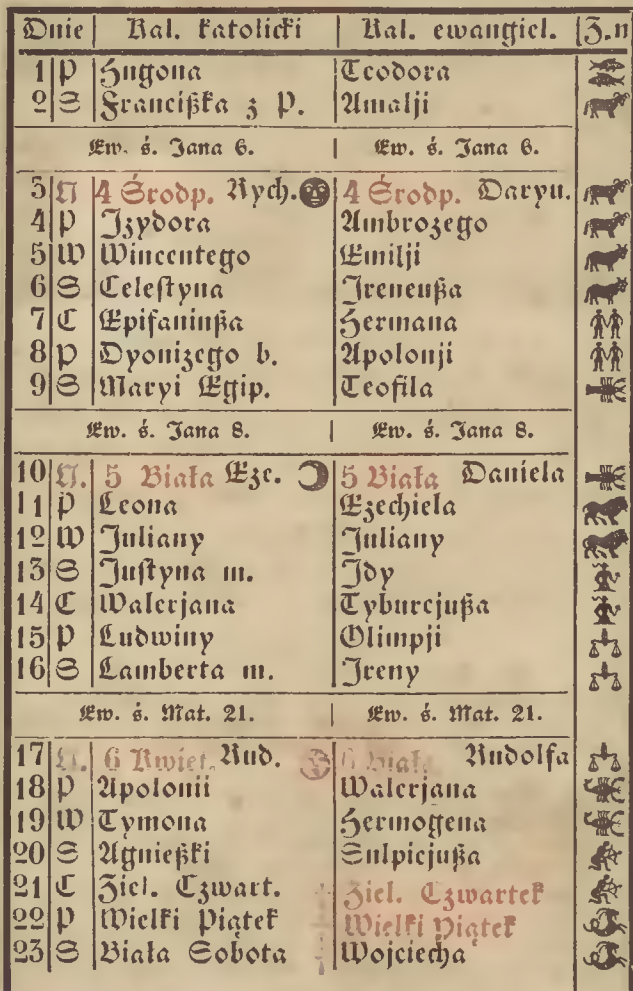 Dnie | Kal. katolicki | Kal. ewangiel. | Z.n
1 P Hugona Teodora
2 S Franciszka z P. Amalji
Ew. ś. Jana 6. | Ew. ś. Jana 6.
3 N 4 Środp. Rych. 4 Środp. Daryu.
4 P Izydora Ambrożego
5 W Wincentego Emilji
6 S Celestyna Ireneusza
7 C Epifaniusza Hermana
8 P Dyonizego b. Apolonji
9 S Maryi Egip. Teofila
Ew. ś. Jana 8. | Ew. ś. Jana 8.
10 N. 5 Biała Eze. 5 Biała Daniela
11 P Leona Ezechiela
12 W Juliany Juliany
13 S Justyna m. Idy
14 C Walerjana Tyburcjusza
15 P Ludwiny Olimpji
16 S Lamberta m. Ireny
Ew. ś. Mat. 21. | Ew. ś. Mat. 21.
17 N. 6 Kwiet. Rud. 6 Biała Rudolfa
18 P Apolonii Walerjana
19 W Tymona Hermogena
20 S Agnieszki Sulpicjusza
21 C Ziel. Czwart. Ziel. Czwartek
22 P Wielki Piątek Wielki Piątek
23 S Biała Sobota Wojciecha